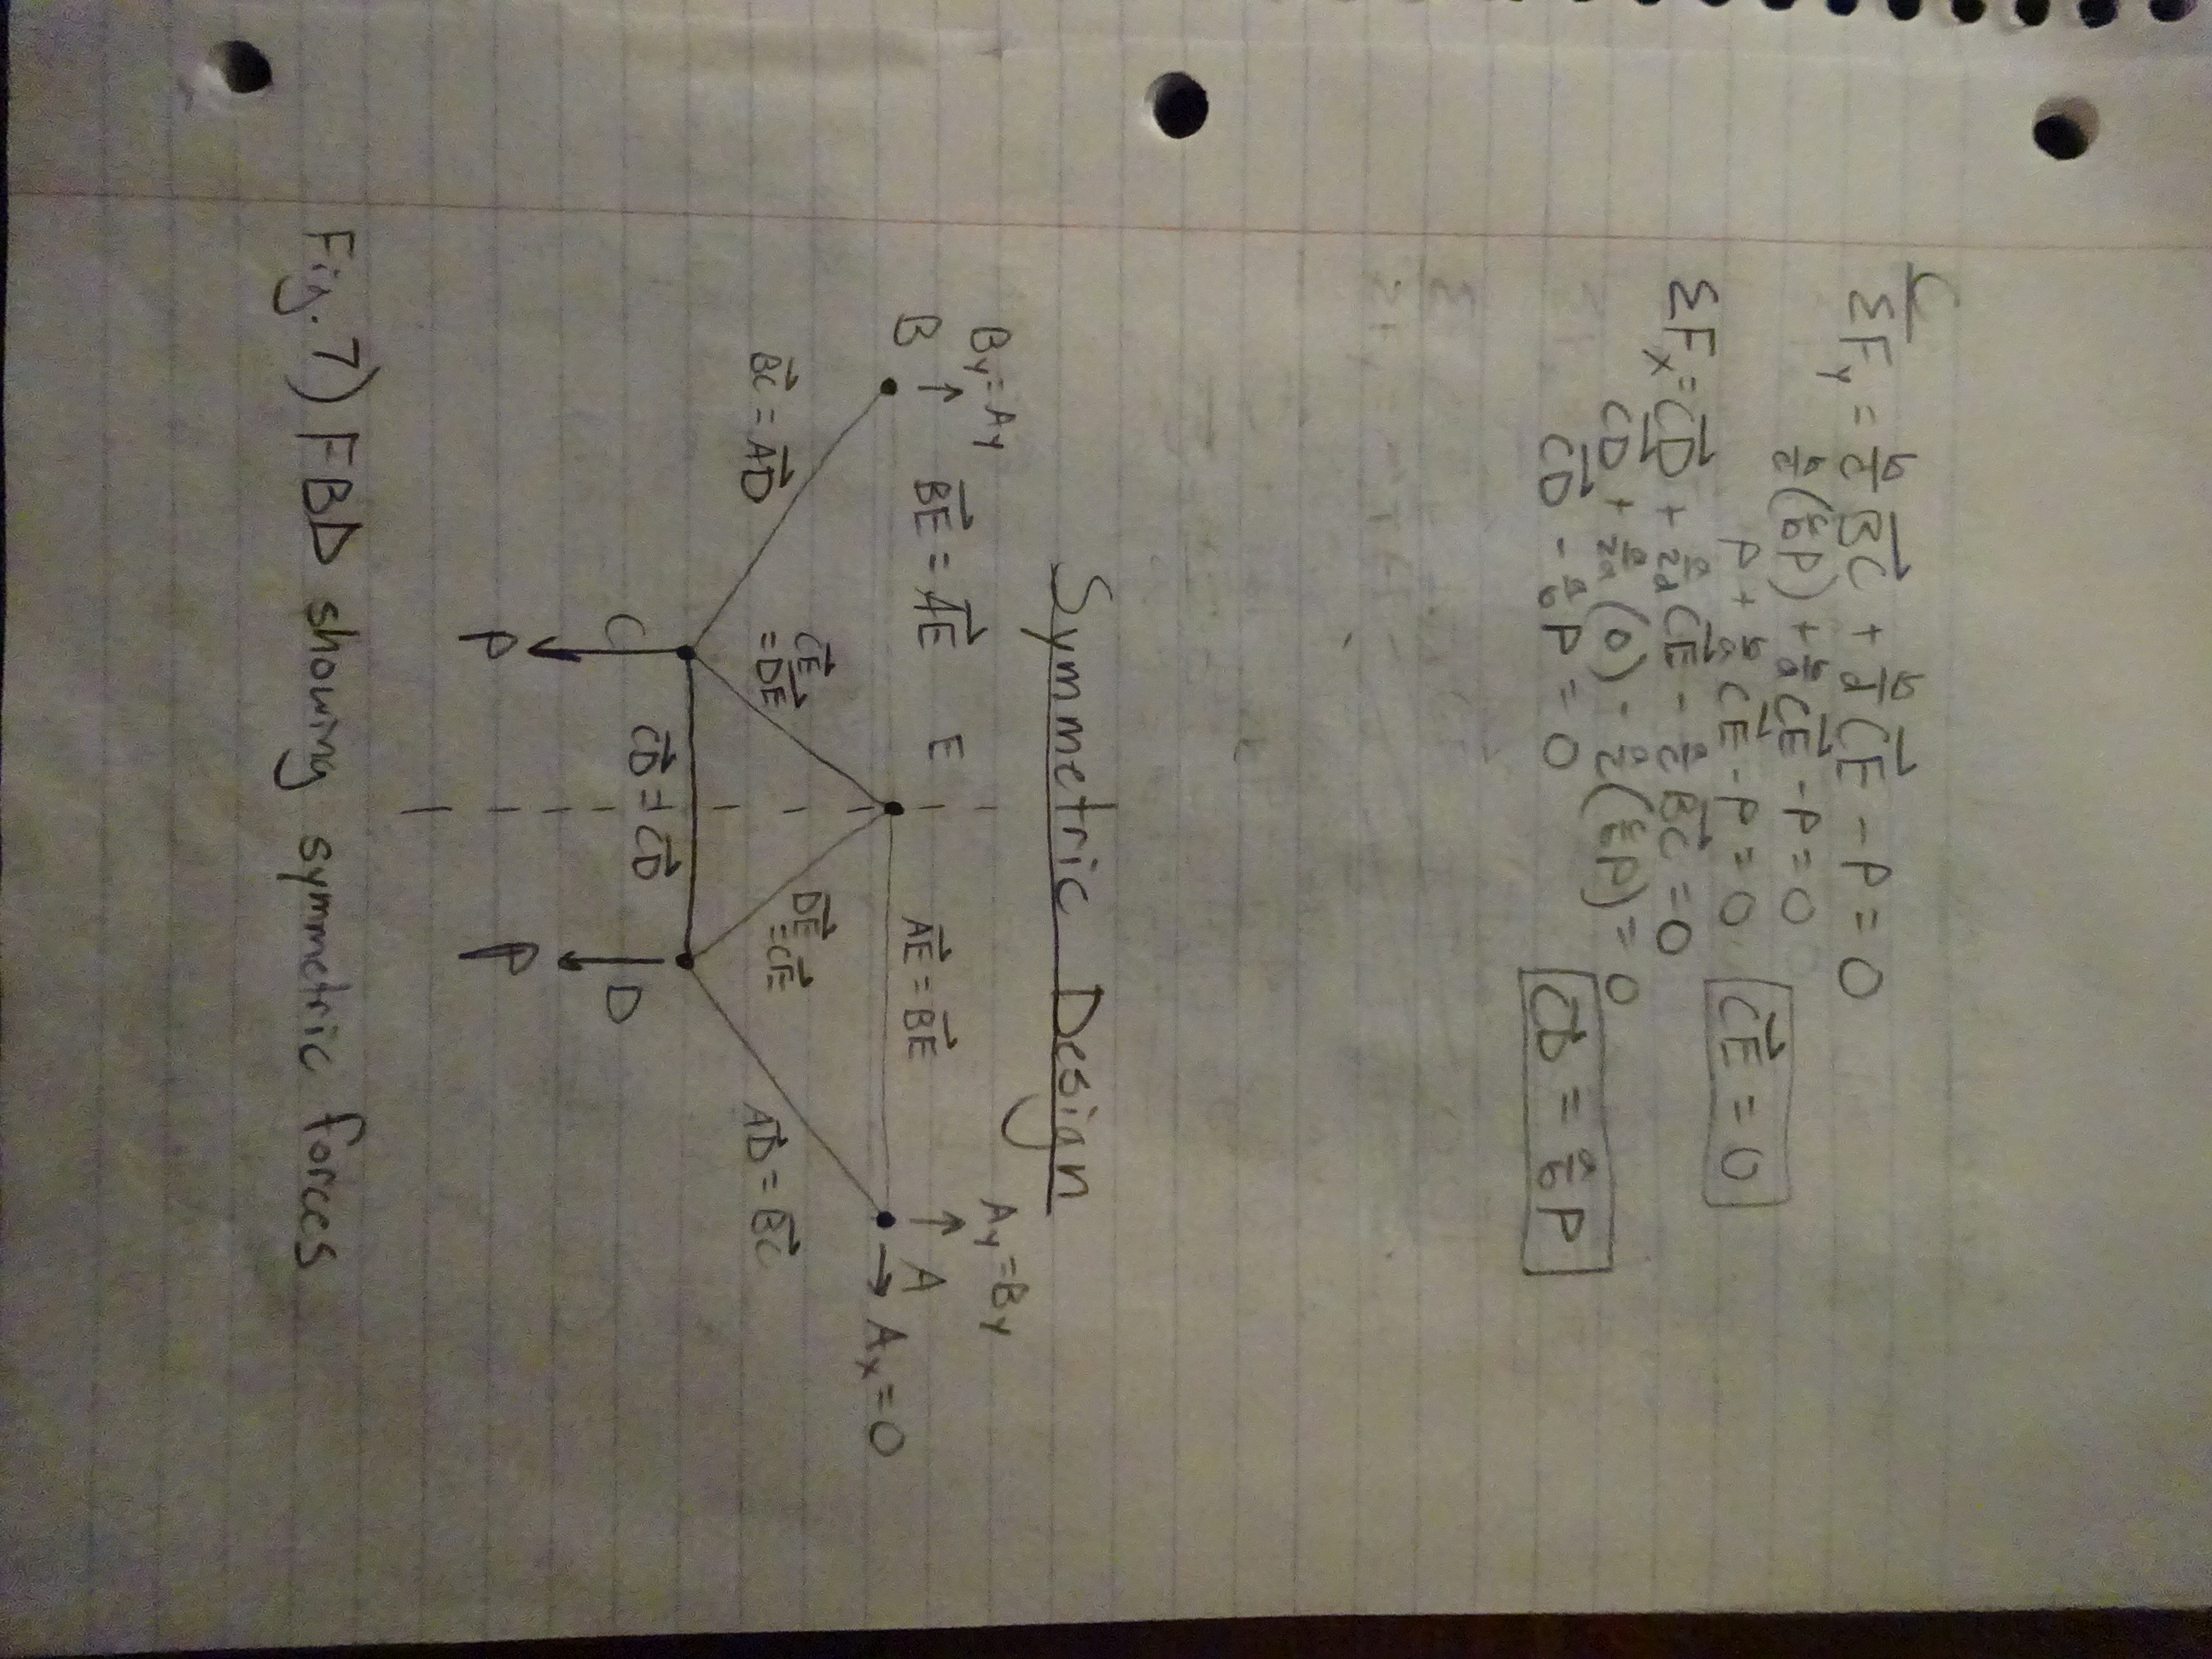 C
ΣFy = b/c BC + b/d CE - P = 0
b/c (c/b P) + b/d CE - P = 0
P + b/d CE - P = 0
CE = 0
ΣFx = CD + a/2d CE - a/c BC = 0
CD + a/2d (0) - a/c (c/b P) = 0
CD - a/b P = 0
CD = a/b P
Symmetric Design
By = Ay
Ay = By
B
BE = AE
E
AE = BE
A
Ax = 0
BC = AD
CE
= DE
DE
= CE
AD = BC
C
CD = CD
D
P
P
Fig. 7) FBD showing symmetric forces